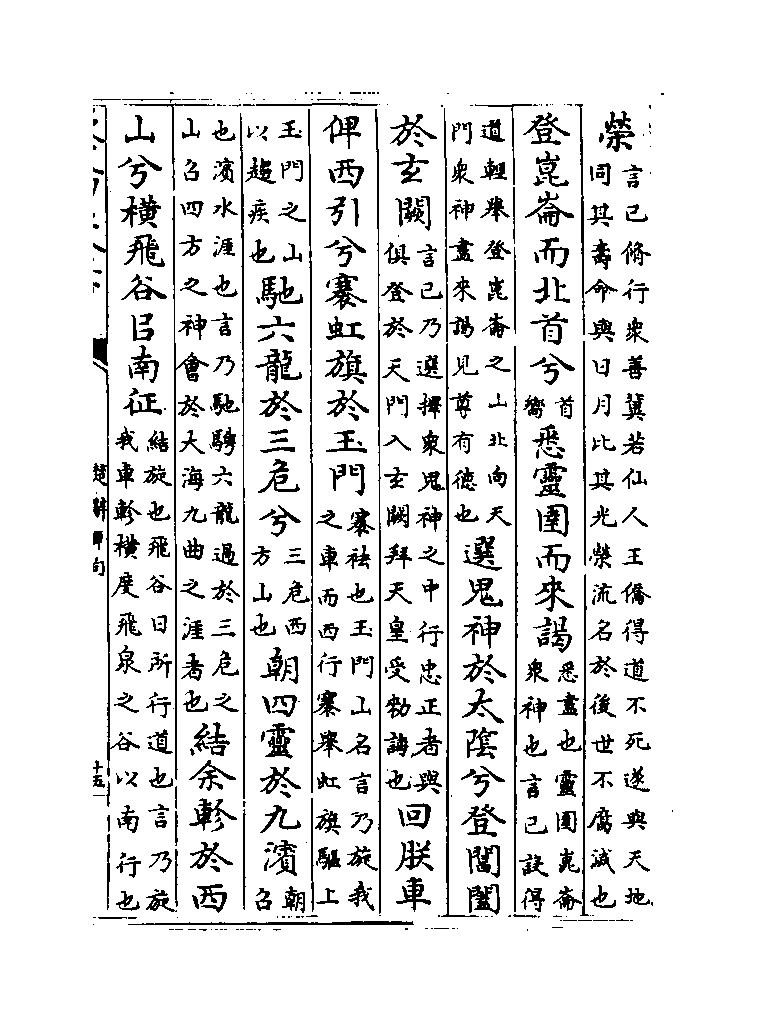 榮言己脩行衆善冀若仙人王僑得道不死遂與天地同其壽命與日月比其光榮流名於後世不腐滅也
登崑崙而北首兮首嚮悉靈圉而來謁悉盡也靈圉崑崙衆神也言己設得
道輕舉登崑崙之山北向天門衆神盡來謁見尊有德也選鬼神於太陰兮登閶闔
於玄闕言己乃選擇衆鬼神之中行忠正者與俱登於天門入玄闕拜天皇受勑誨也回朕車
俾西引兮褰虹旗於玉門褰袪也玉門山名言乃旋我之車而西行褰舉虹旗驅上
玉門之山以趍疾也馳六龍於三危兮三危西方山也朝四靈於九濱朝召
也濱水涯也言乃馳騁六龍過於三危之山召四方之神會於大海九曲之涯者也結余軫於西
山兮橫飛谷㠯南征結旋也飛谷日所行道也言乃旋我車軫橫度飛泉之谷以南行也